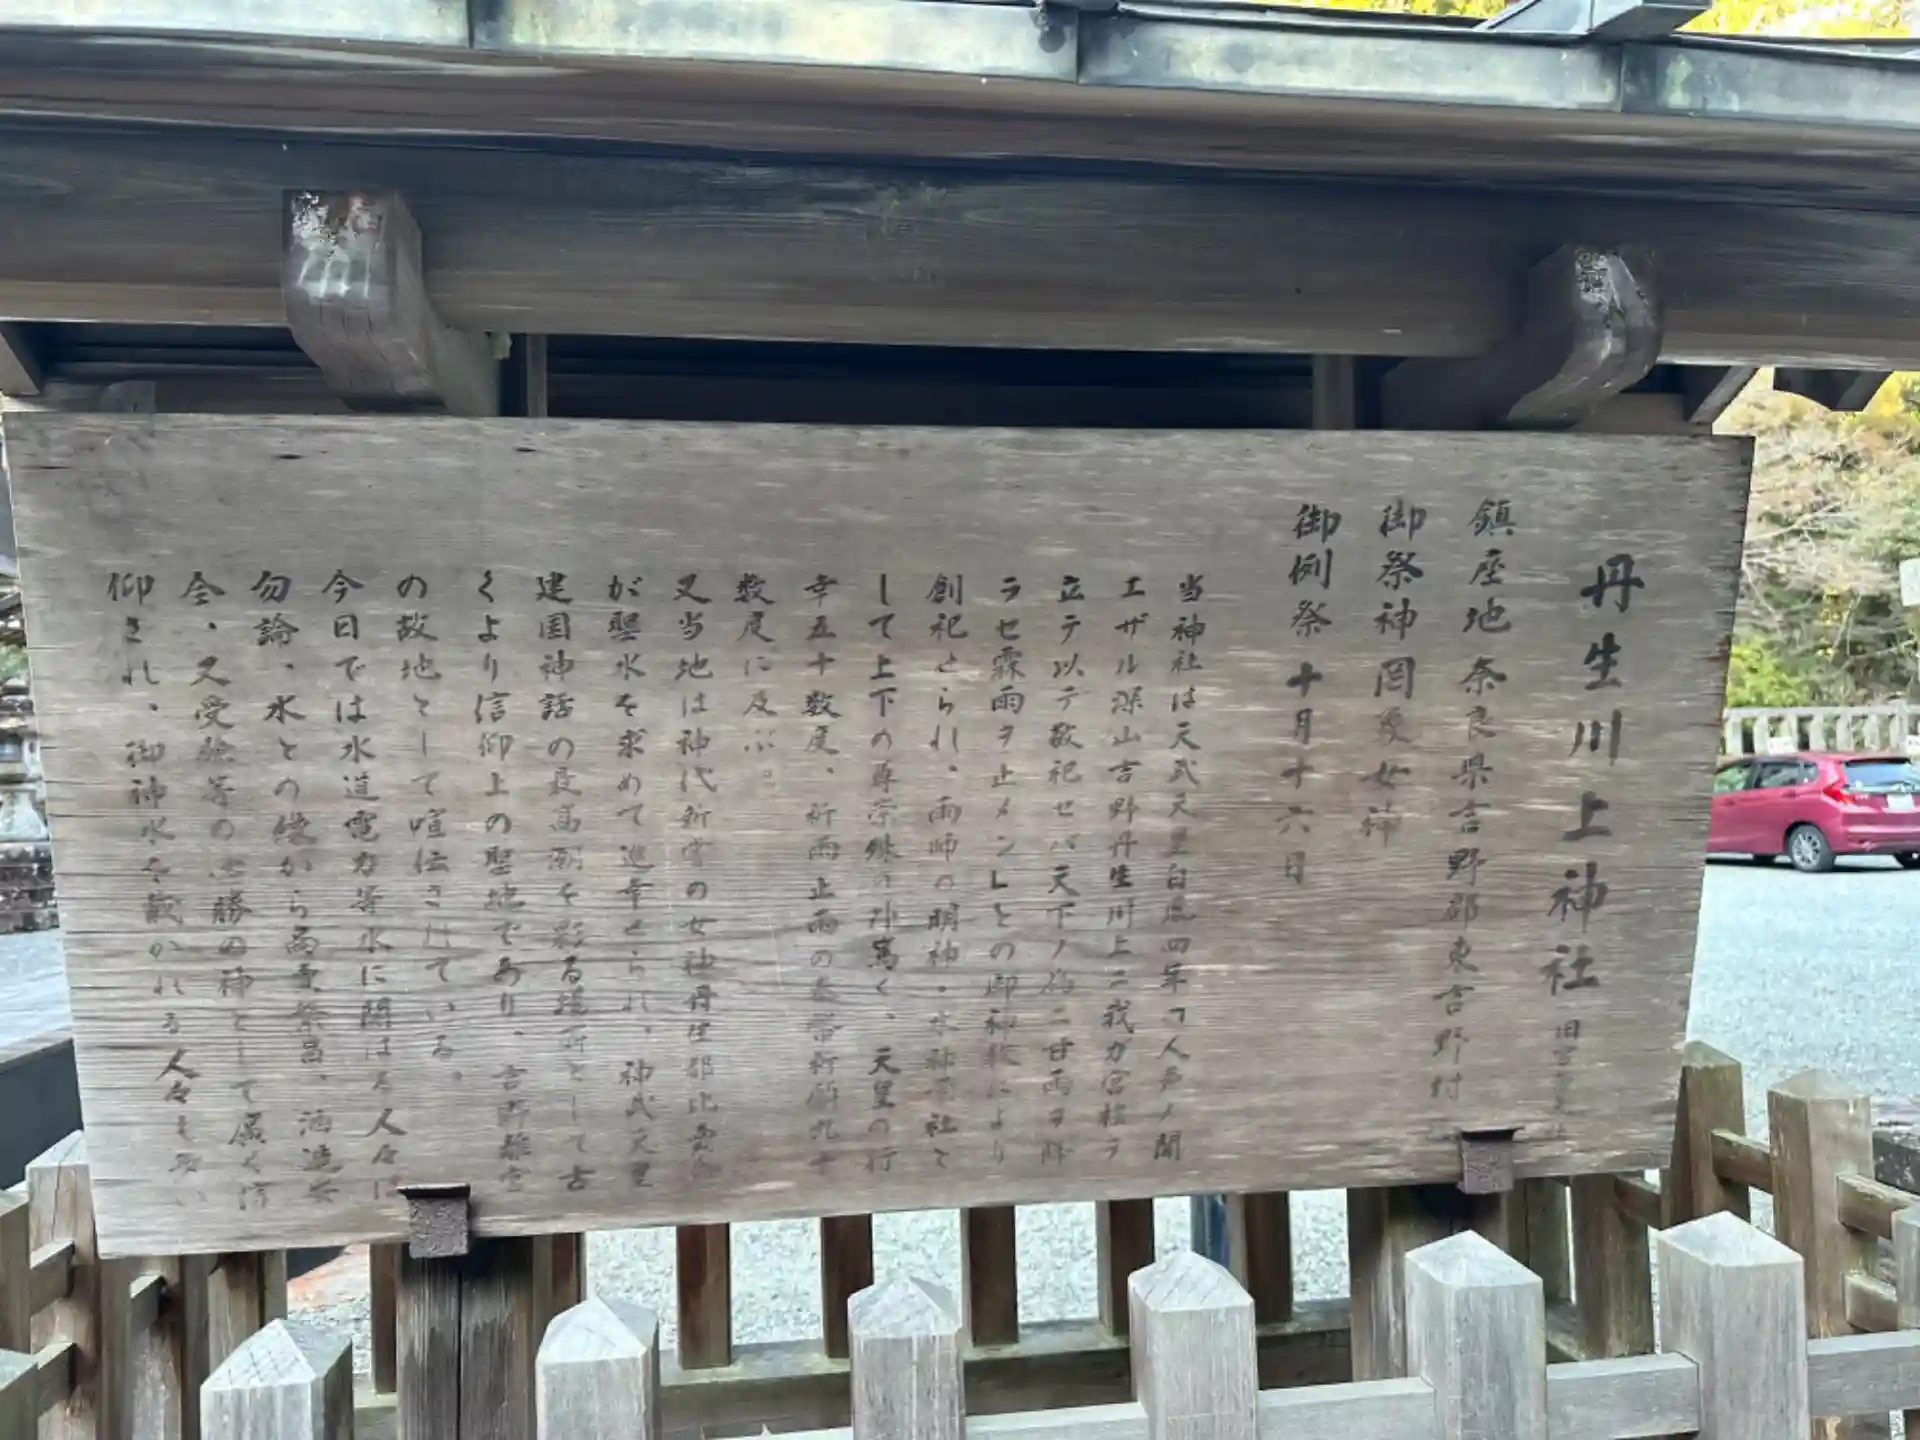 丹生川上神社
鎮座地 奈良県吉野郡東吉野村
御祭神 罔象女神
御例祭 十月十六日
当神社は天武天皇白鳳四年「人声ノ聞
エザル深山吉野丹生川上ニ我ガ宮柱ヲ
立テ以テ敬祀セバ天下ノ為ニ甘雨ヲ降
ラセ霖雨ヲ止メンLとの御神教により
創祀せられ、雨師の明神・水神宗社と
して上下の尊崇殊の外篤く、天皇の行
幸五十数度、祈雨止雨の奉幣祈願九十
数度に及ぶ。
又当地は神代 の女神丹生都比売命
が聖水を求めて巡幸せられ、神武天皇
建国神話の最高潮を彩る場所として古
くより信仰上の聖地であり、吉野離宮
の故地として喧伝されている。
今日では水道電力等水に関はる人々は
勿論、水との縁から商売繁昌、酒造
会、又受験等の必勝の神として広く信
仰され、御神水を戴かれる人々も多い